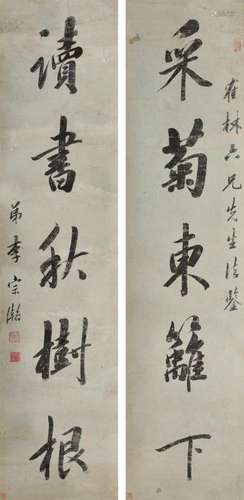 采菊東籬下
崔林六兄先生法鑒
讀書秋樹根
弟李宗瀚